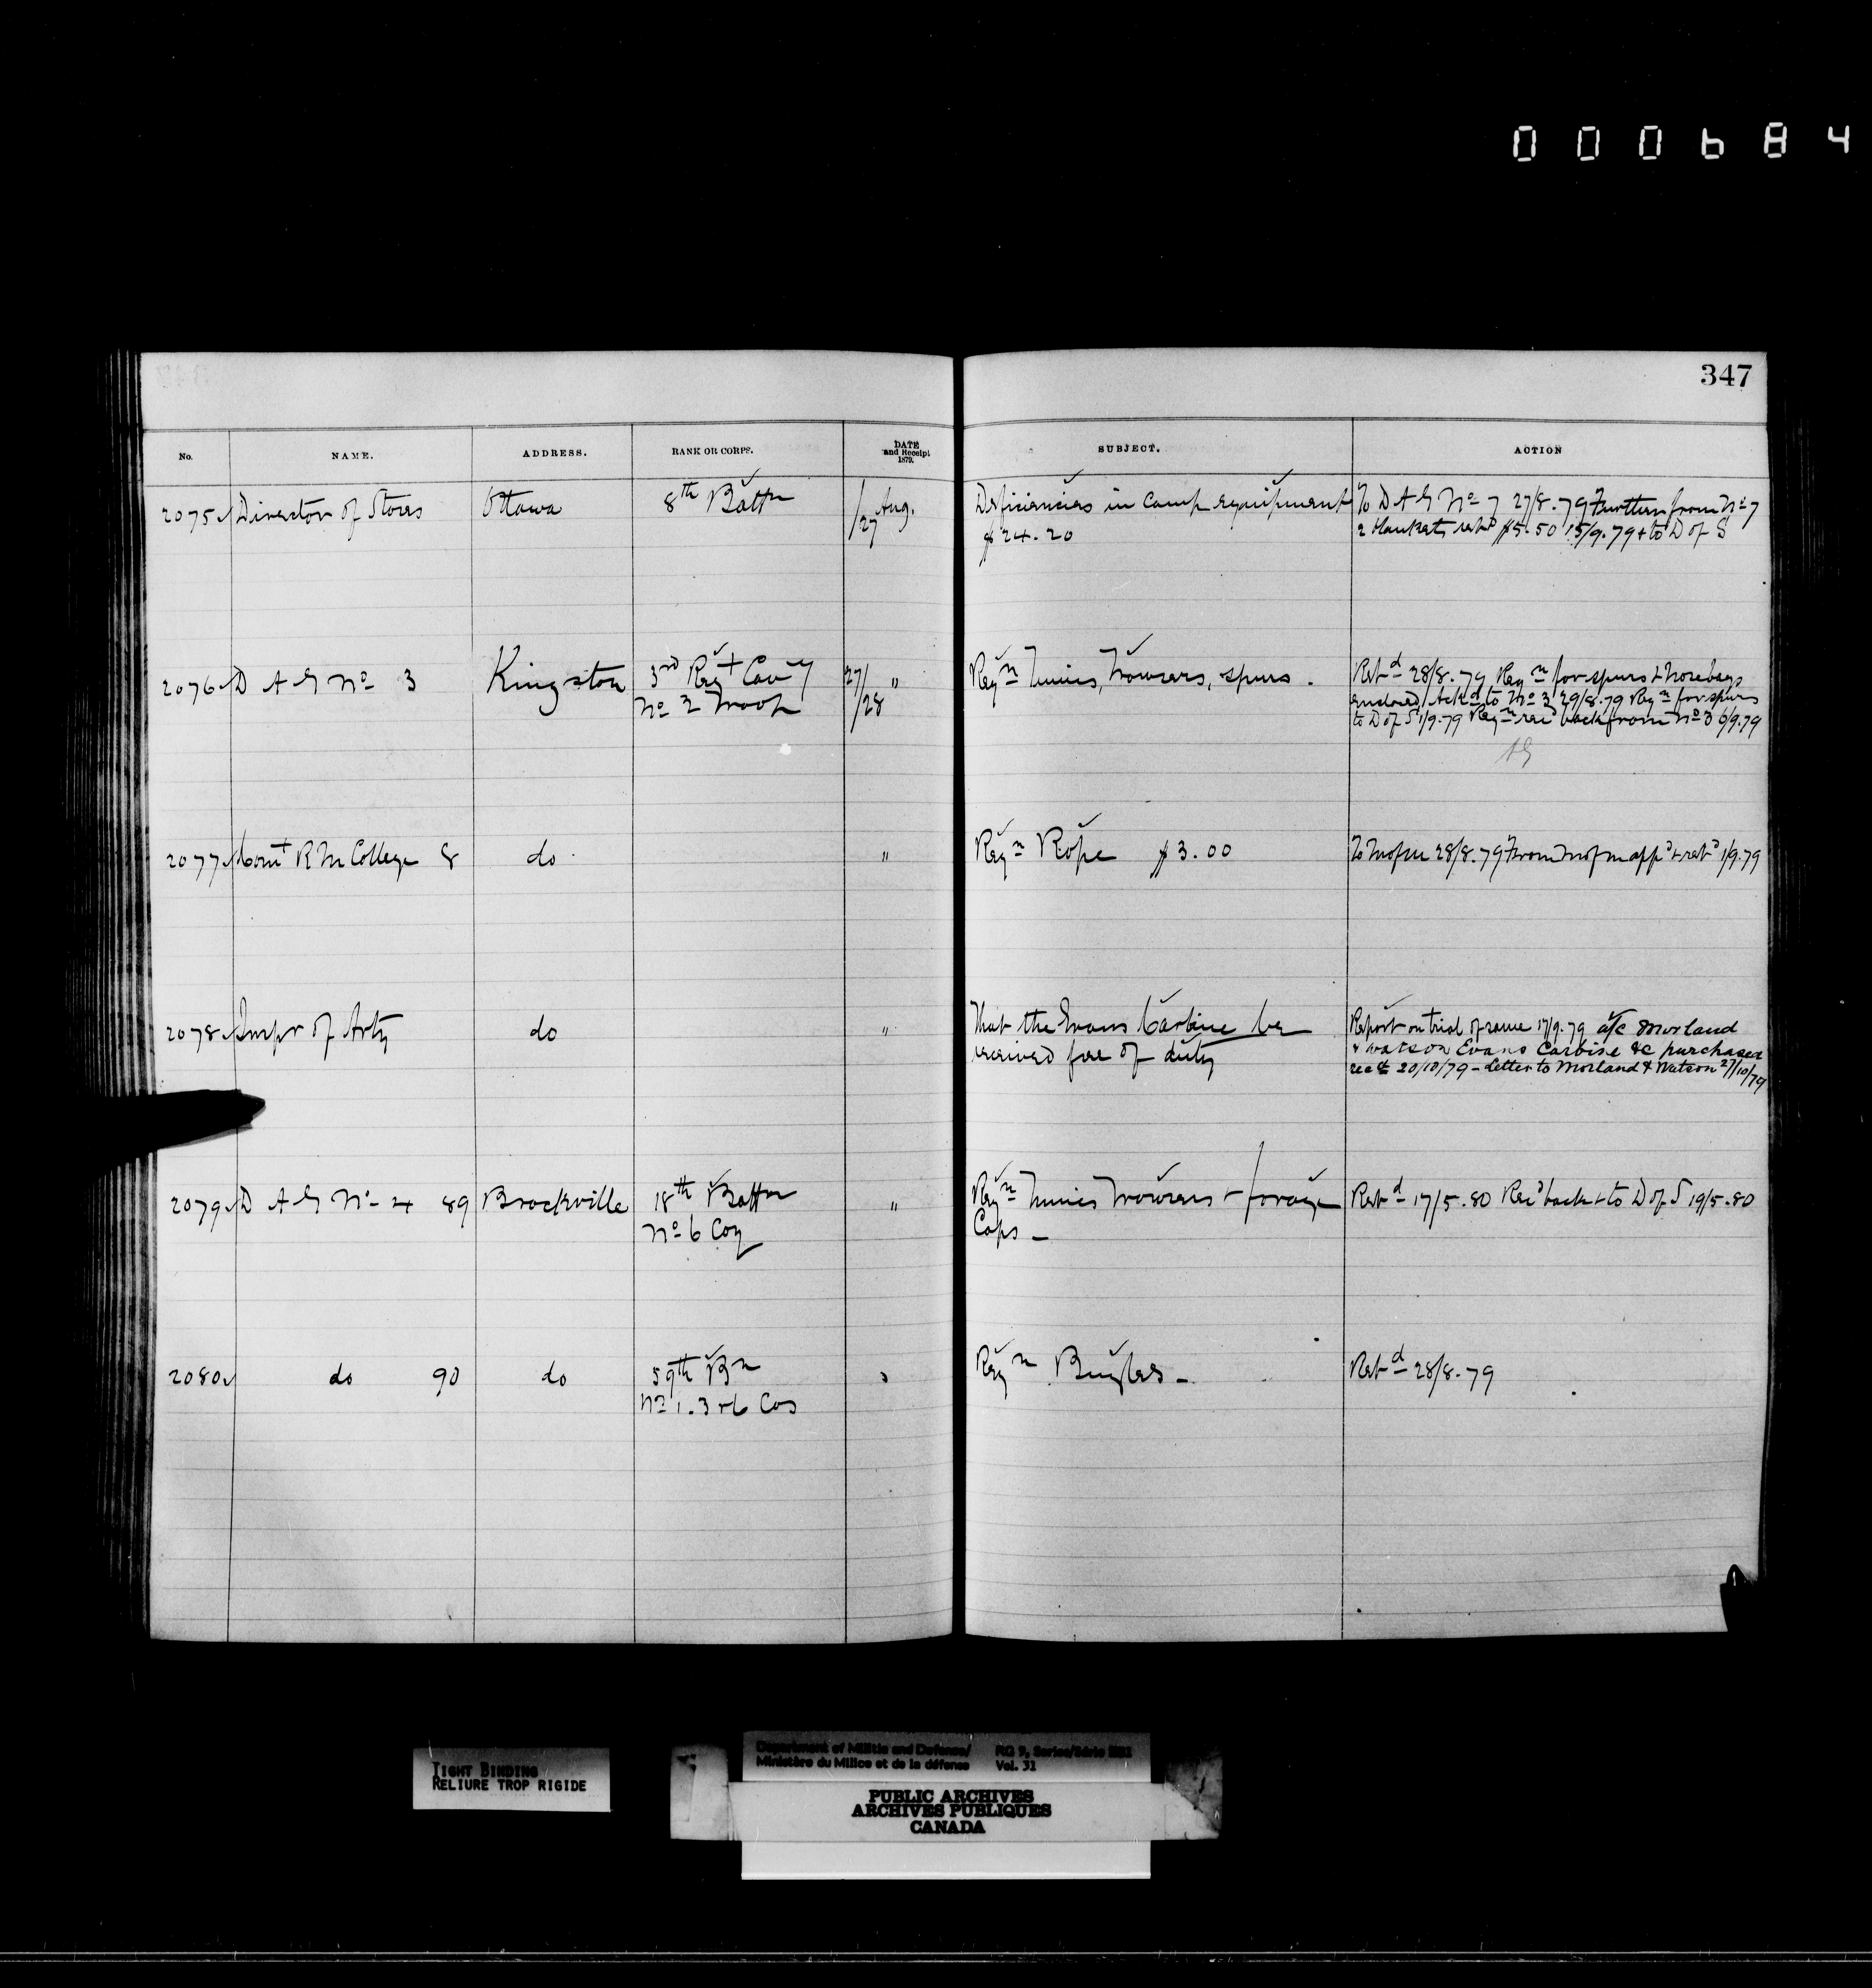 000684
347
No. NAME. ADDRESS. RANK OR CORPS. DATE and Receipt 1879. SUBJECT. ACTION
2075 Director of Stores Ottawa 8th Battn /27 Aug. Deficiencies in Camp equipment To D A G No 7 27/8.79 Further from No 7
$24.20 2 blankets retd $5.50 15/9.79 + to D of S
2076 D A G No 3 Kingston 3rd Regt Cavy 27/ " Reqn Tunics, Trowsers, spurs. Retd 28/8.79 Reqn for spurs & nosebags
No 2 Troop /28 enclosed Ackd to No 3 29/8.79 Reqn for spurs
to D of S 1/9.79 Reqn recd back from No 3 6/9.79
2077 Comt R M College 8 do " Reqn Rope $3.00 To M of M 28/8.79 From M of M appd & retd 1/9.79
2078 Inspr of Arty do " That the Evans Carbine be Report on trial of same 17/9.79 a/c Morland
received free of duty & Watson Evans Carbine &c purchased
recd 20/10/79 - Letter to Morland & Watson 27/10/79
2079 D A G No 4 89 Brockville 18th Battn " Reqn Tunics Trowsers + forage Retd 17/5.80 Recd back & to D of S 19/5.80
No 6 Coy Caps -
2080 do 90 do 59th Bn " Reqn Bugles - Retd 28/8.79
No 1.3+6 Cos
TIGHT BINDING
RELIURE TROP RIGIDE
Department of Militia and Defence/ RG 9, Series/Série
Ministère du Milice et de la défense Vol. 31
PUBLIC ARCHIVES
ARCHIVES PUBLIQUES
CANADA